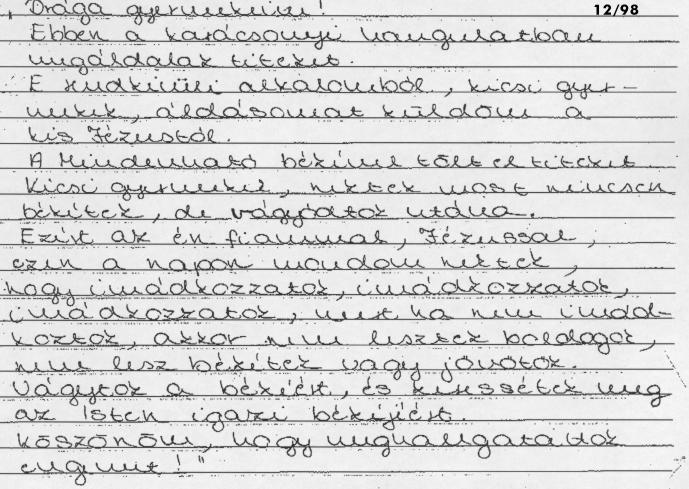 12/98
„Drága gyermekeim!
Ebben a karácsonyi hangulatban
megáldalak titeket.
E rendkívüli alkalomból, kicsi gyer-
mekek, áldásomat küldöm a
kis Jézustól.
A Mindenható békéivel töltsel titeket
Kicsi gyermekek, nektek most nincsen
békétek, de vágyódtok utána.
Ezért az én fiammal, Jézussal,
ezen a napon mondom nektek,
hogy imádkozzatok, imádkozzatok,
imádkozzatok, mert ha nem imád-
koztok, akkor nem lesztek boldogok,
nem lesz békétek vagy jövőtök.
Vágytok a békéért, és keressétek meg
az Isten igazi békéjéért.
Köszönöm, hogy meghallgattatok
engemet!"